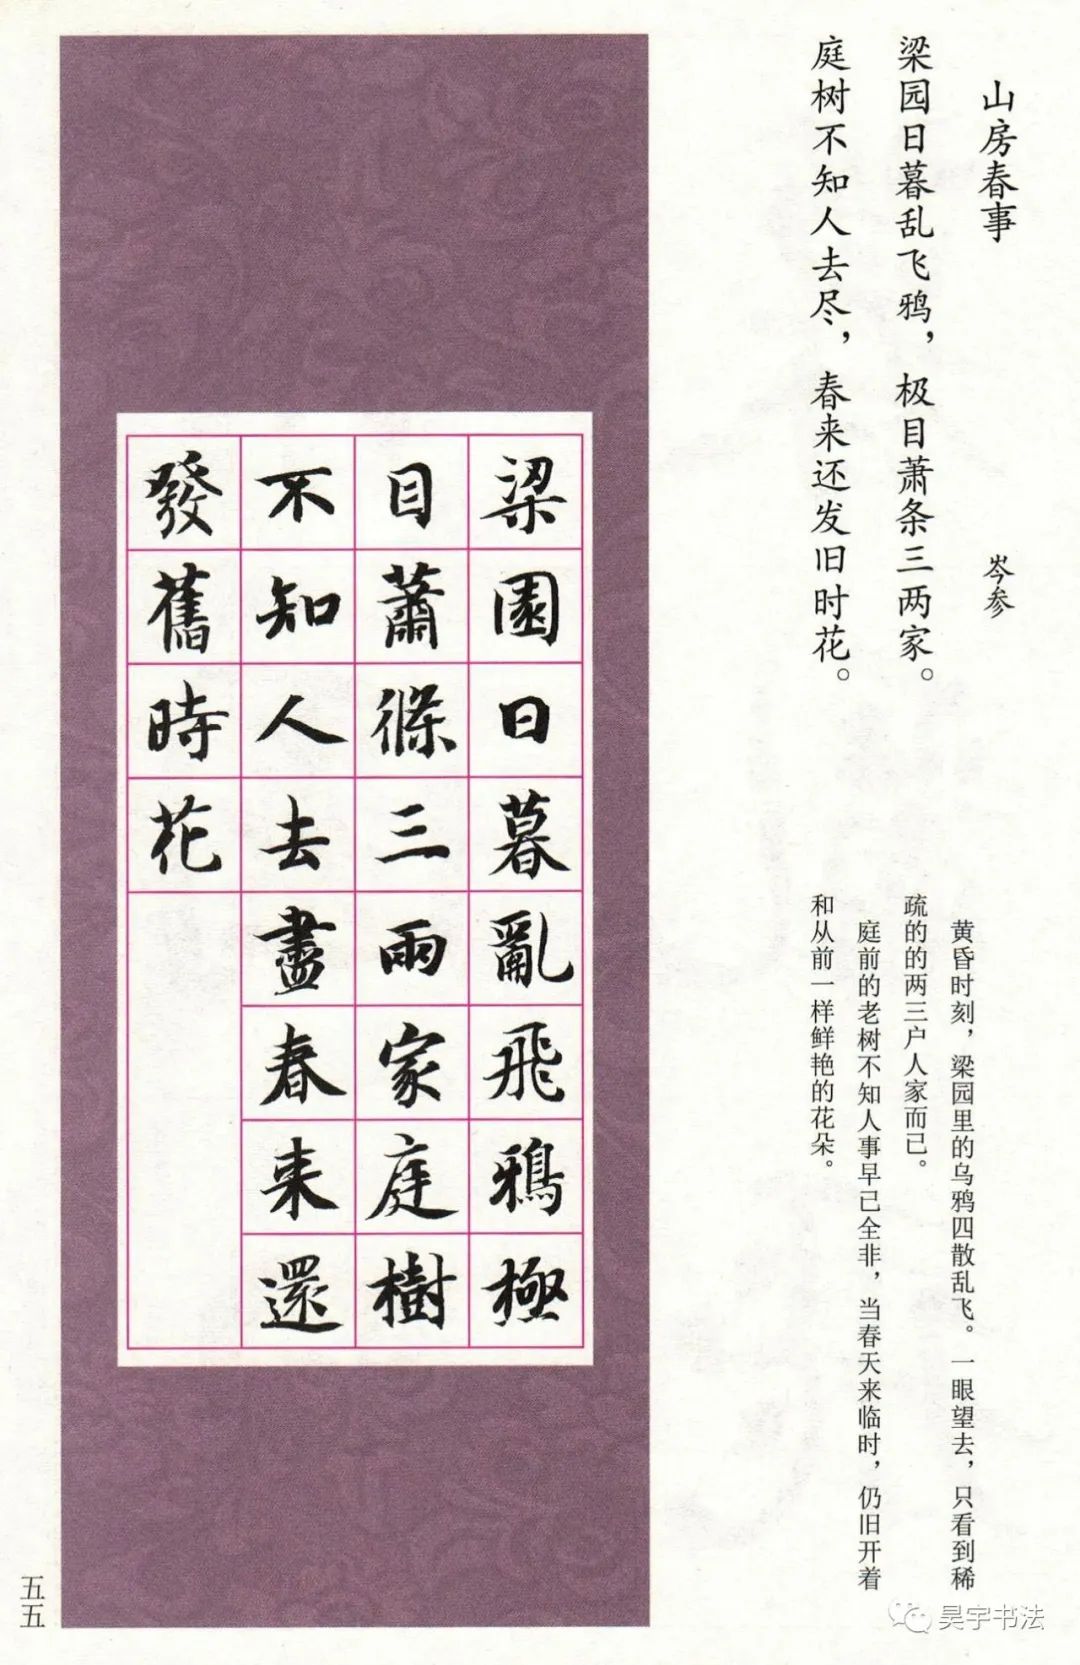 山房春事
岑参
梁园日暮乱飞鸦，极目萧条三两家。
庭树不知人去尽，春来还发旧时花。
黄昏时刻，梁园里的乌鸦四散乱飞。一眼望去，只看到稀
疏的的两三户人家而已。
庭前的老树不知人事早已全非，当春天来临时，仍旧开着
和从前一样鲜艳的花朵。
梁園日暮亂飛鴉極
目蕭條三兩家庭樹
不知人去盡春来還
發舊時花
五五
昊宇书法